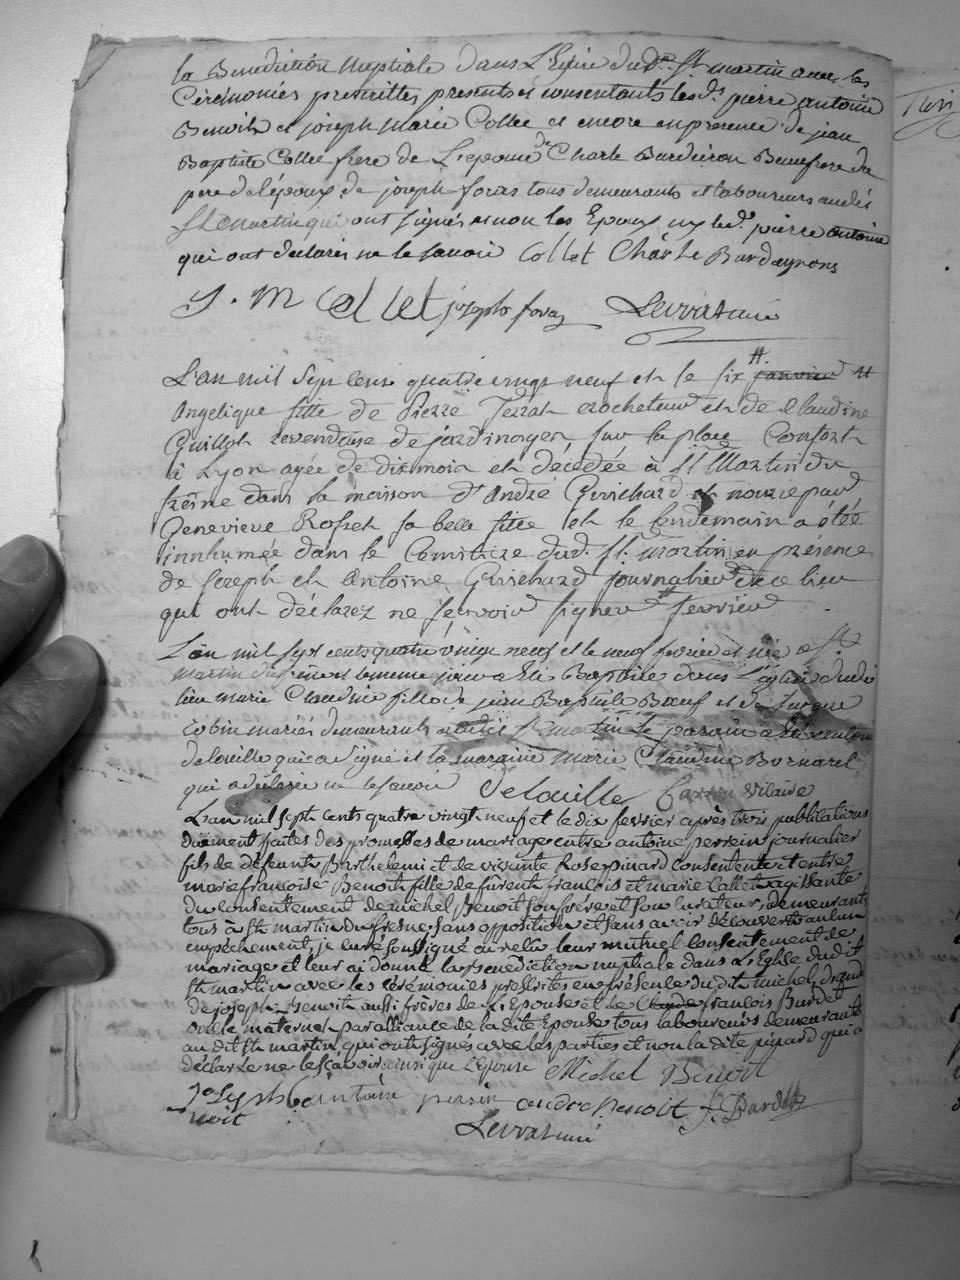 la Benediction Nuptiale dans L'Eglise dud. St martin avec les
Cérémonies prescrittes presents et consentants lesd.s pierre antoine
Benoit et joseph Marie Collet et encore en presence de jean
Baptiste Collet frere de L'epouse de Charle Burdeiron Beaufrere du
pere de l'époux de joseph foras tous demeurants et laboureurs audit
St Martin qui ont signés et non les Epoux ny led. pierre antoine
qui ont déclarés ne le savoir Collet Charle Burdeyrons
J. M Collet joseph foraz Levrat curé
L'an mil Sept Cens quatre vingt neuf et le six janvier #
Angelique fille de Pierre Terrat crocheteur et de Claudine
Guillot revendeuse de jardinages, sur la place Confort
à Lyon agée de dix mois et décedée à St Martin du
frêne dans la maison d'André Guichard et nourrie par
Genevieve Rosset sa belle fille et le lendemain a été
innhumée dans le Cemitiere dud. St. Martin en présence
de Joseph et Antoine Guichard journalier de ce lieu
qui ont déclarez ne sçavoir signer # fevrier
L'an mil sept cents quatre vingt neuf et le neuf fevrier est née a St
martin du frêne et le meme jour a été Baptisée dans l'église dudit
lieu marie Claudine fille de jean Baptiste Bœuf et de
Cobin mariés demeurants audit St martin le parain a été
delouille qui a signé et la maraine Marie Claudine Bornarel
qui a déclaré ne le savoir Delouille vicaire
L'an mil sept cents quatre vingt neuf et le dix fevrier après trois publications
duëment faites des promesses de mariage entre antoine perrein journalier
fils de défeunt Barthelemi et de vivante Rose pinard consentente et entre
marie françoise Benoit fille de fûrent françois et marie Callet agissante
du consentement de michel Benoit son frere et son curateur, demeurants
tous à St martin du fresne, sans opposition et sans avoir découverts aucun
empechement, je curé soussigné ai reçu leur mutuel consentement de
mariage et leur ai donné la Benédiction nuptiale dans L'Eglise dudit
St martin avec les cérémonies prescrites en présence dudit michel, d'andré
de joseph Benoit aussi frères de L'Epouse et de Claude françois Burdet
oncle maternel par alliance de la dite Epouse tous laboureurs demeurants
audit St martin, qui ont signés avec les parties et non la dite pinard qui a
déclaré ne le sçavoir ainsi que L'Epouse Michel Benoit
Joseph be antoine perrin andre Benoit f. Burdet
noit
Levrat curé